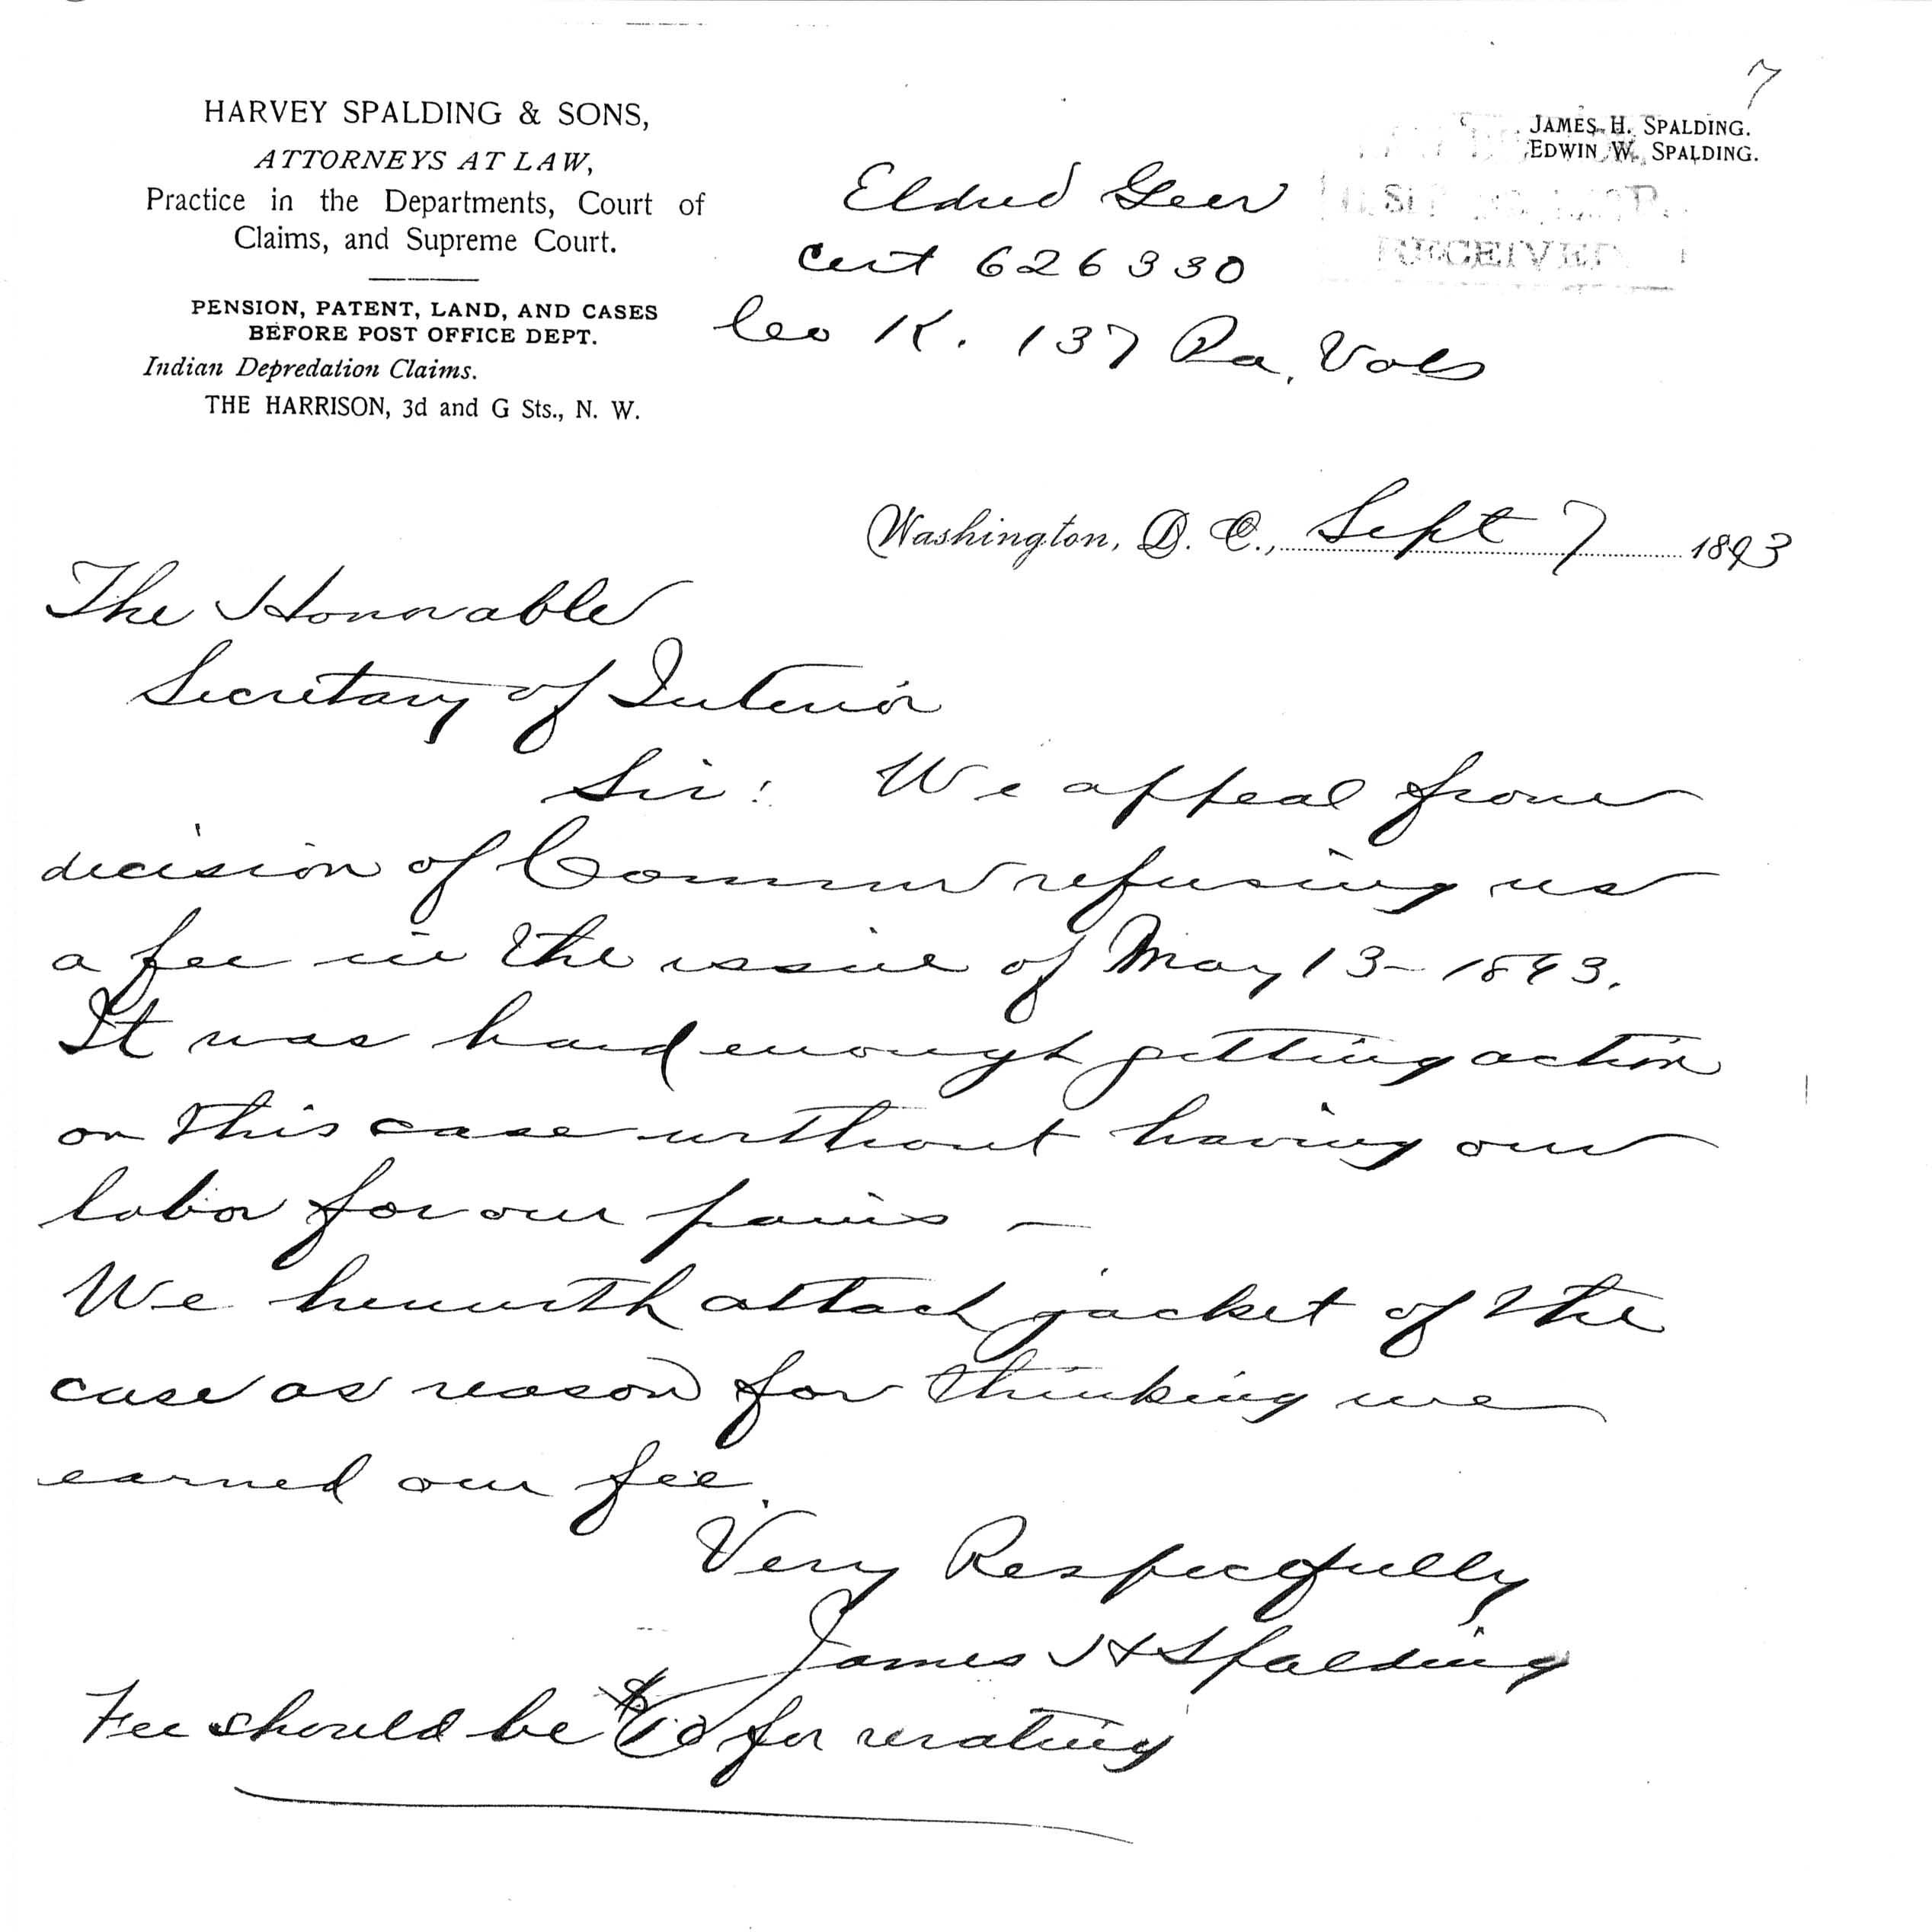 7
HARVEY SPALDING & SONS,
ATTORNEYS AT LAW,
Practice in the Departments, Court of
Claims, and Supreme Court.
PENSION, PATENT, LAND, AND CASES
BEFORE POST OFFICE DEPT.
Indian Depredation Claims.
THE HARRISON, 3d and G Sts., N. W.
JAMES H. SPALDING.
EDWIN W. SPALDING.
RECEIVED
Eldred Geer
Cert 626330
Co K. 137 Pa. Vols
Washington, D. C., Sept 7 1893
The Honorable
Secretary of Interior
Sir: We appeal from
decision of Commr refusing us
a fee in the issue of May 13-1893.
It was hard enough getting action
on this case without having our
labor for our pains —
We herewith attach jacket of the
case as reason for thinking we
earned our fee.
Very Respectfully
James H Spalding
Fee should be for rerating